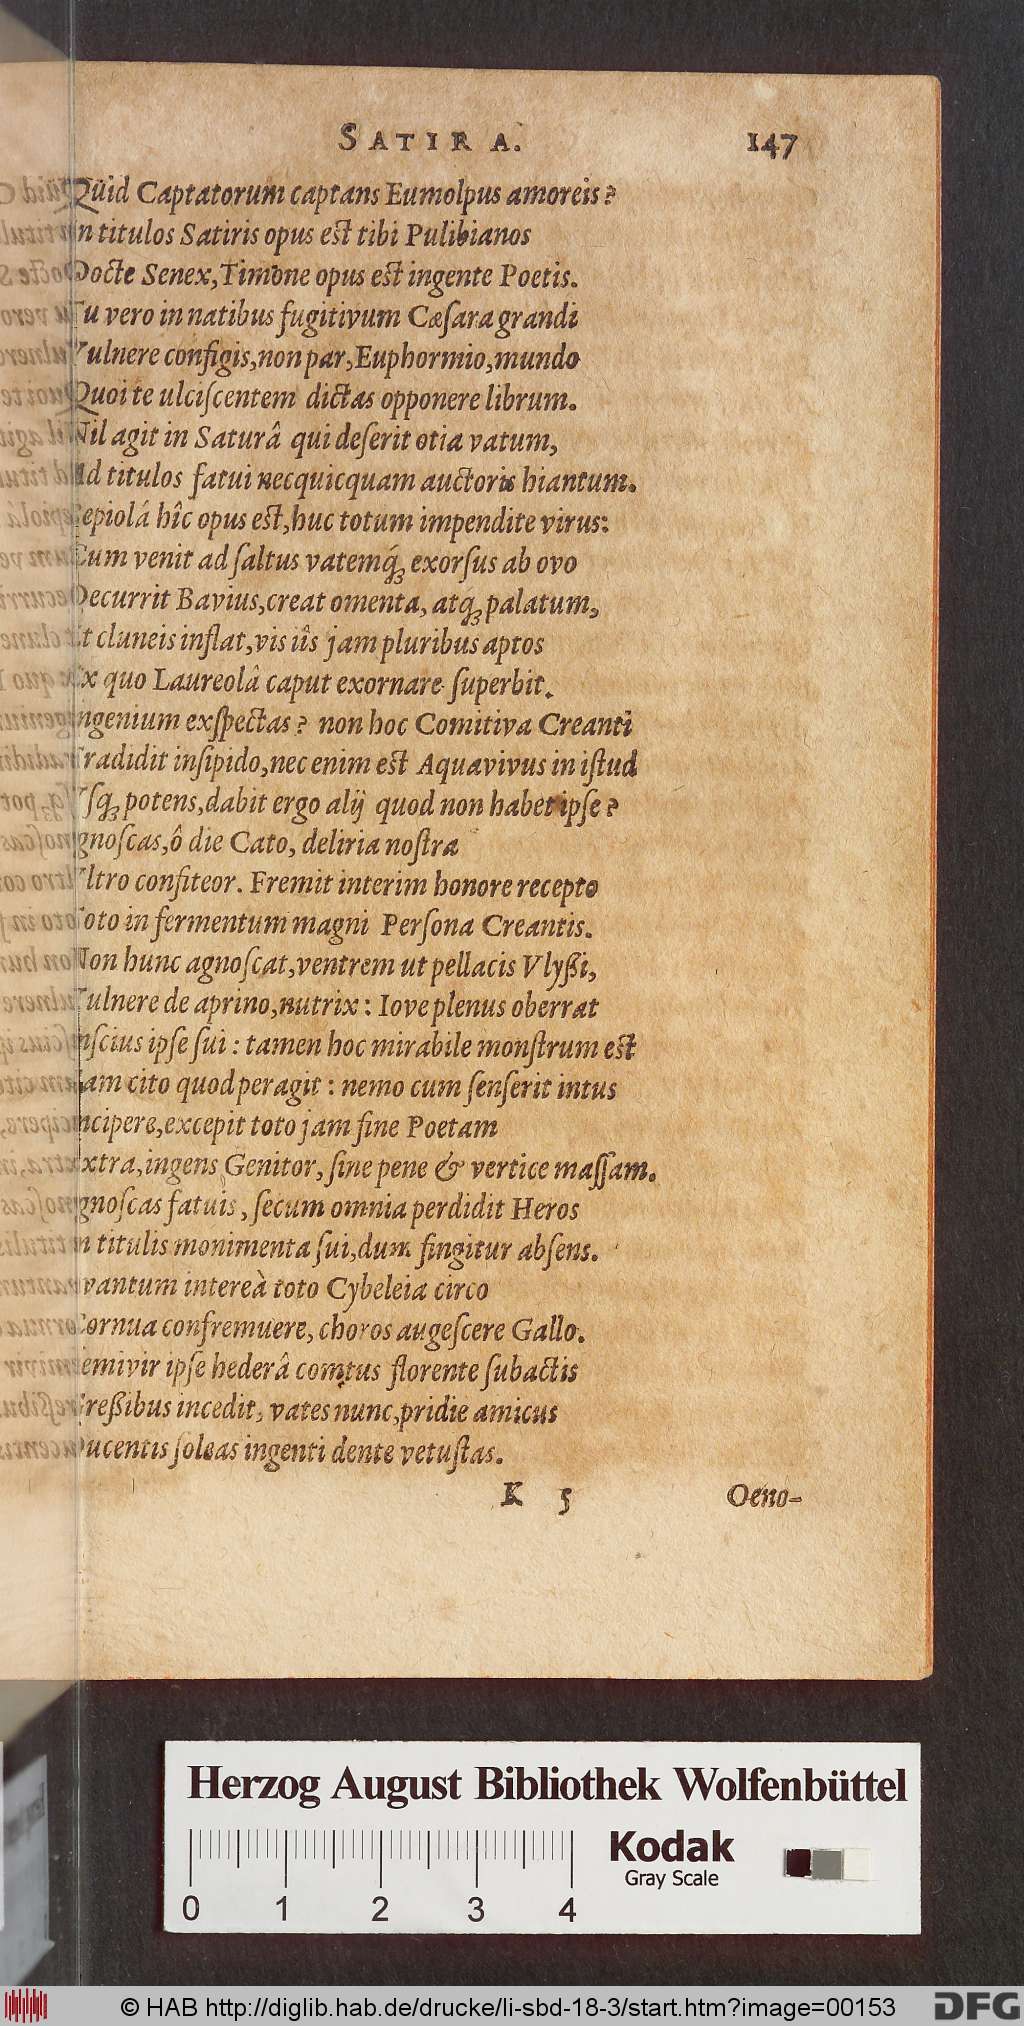 SATIRA. 147
Qŭid Captatorum captans Eumolpus amoreis?
In titulos Satiris opus est tibi Pulibianos
Docte Senex, Timone opus est ingente Poetis.
Tu vero in natibus fugitivum Cæſara grandi
Vulnere configis, non par, Euphormio, mundo
Quoi te ulciſcentem dictas opponere librum.
Nil agit in Saturâ qui deſerit otia vatum,
Ad titulos fatui necquicquam auctoris hiantum.
Sepiolá hîc opus est, huc totum impendite virus:
Cum venit ad ſaltus vatemq́ꝫ exorſus ab ovo
Decurrit Bavius, creat omenta, atq́ꝫ palatum,
Et cluneis inflat, vis iîs jam pluribus aptos
Ex quo Laureolâ caput exornare ſuperbit.
Ingenium exſpectas? non hoc Comitiva Creanti
Tradidit inſipido, nec enim est Aquavivus in iſtud
Vſqꝫ potens, dabit ergo alij quod non habet ipſe?
Ignoſcas, ô die Cato, deliria noſtra
Vltro confiteor. Fremit interim honore recepto
Toto in fermentum magni Perſona Creantis.
Non hunc agnoſcat, ventrem ut pellacis Vlyßi,
Vulnere de aprino, nutrix: Iove plenus oberrat
Inſcius ipſe ſui: tamen hoc mirabile monſtrum est
Tam cito quod peragit: nemo cum ſenſerit intus
Incipere, excepit toto jam fine Poetam
Extra, ingens Genitor, ſine pene & vertice maſſam.
Ignoſcas fatuis, ſecum omnia perdidit Heros
In titulis monimenta ſui, dum fingitur abſens.
Quantum intereà toto Cybeleia circo
Cornua confremuere, choros augeſcere Gallo.
Semivir ipſe hederâ comtus florente ſubactis
Greßibus incedit, vates nunc, pridie amicus
Ducentis ſoleas ingenti dente vetuſtas.
K 5 Oeno-
Herzog August Bibliothek Wolfenbüttel
0 1 2 3 4
Kodak
Gray Scale
© HAB http://diglib.hab.de/drucke/li-sbd-18-3/start.htm?image=00153
DFG